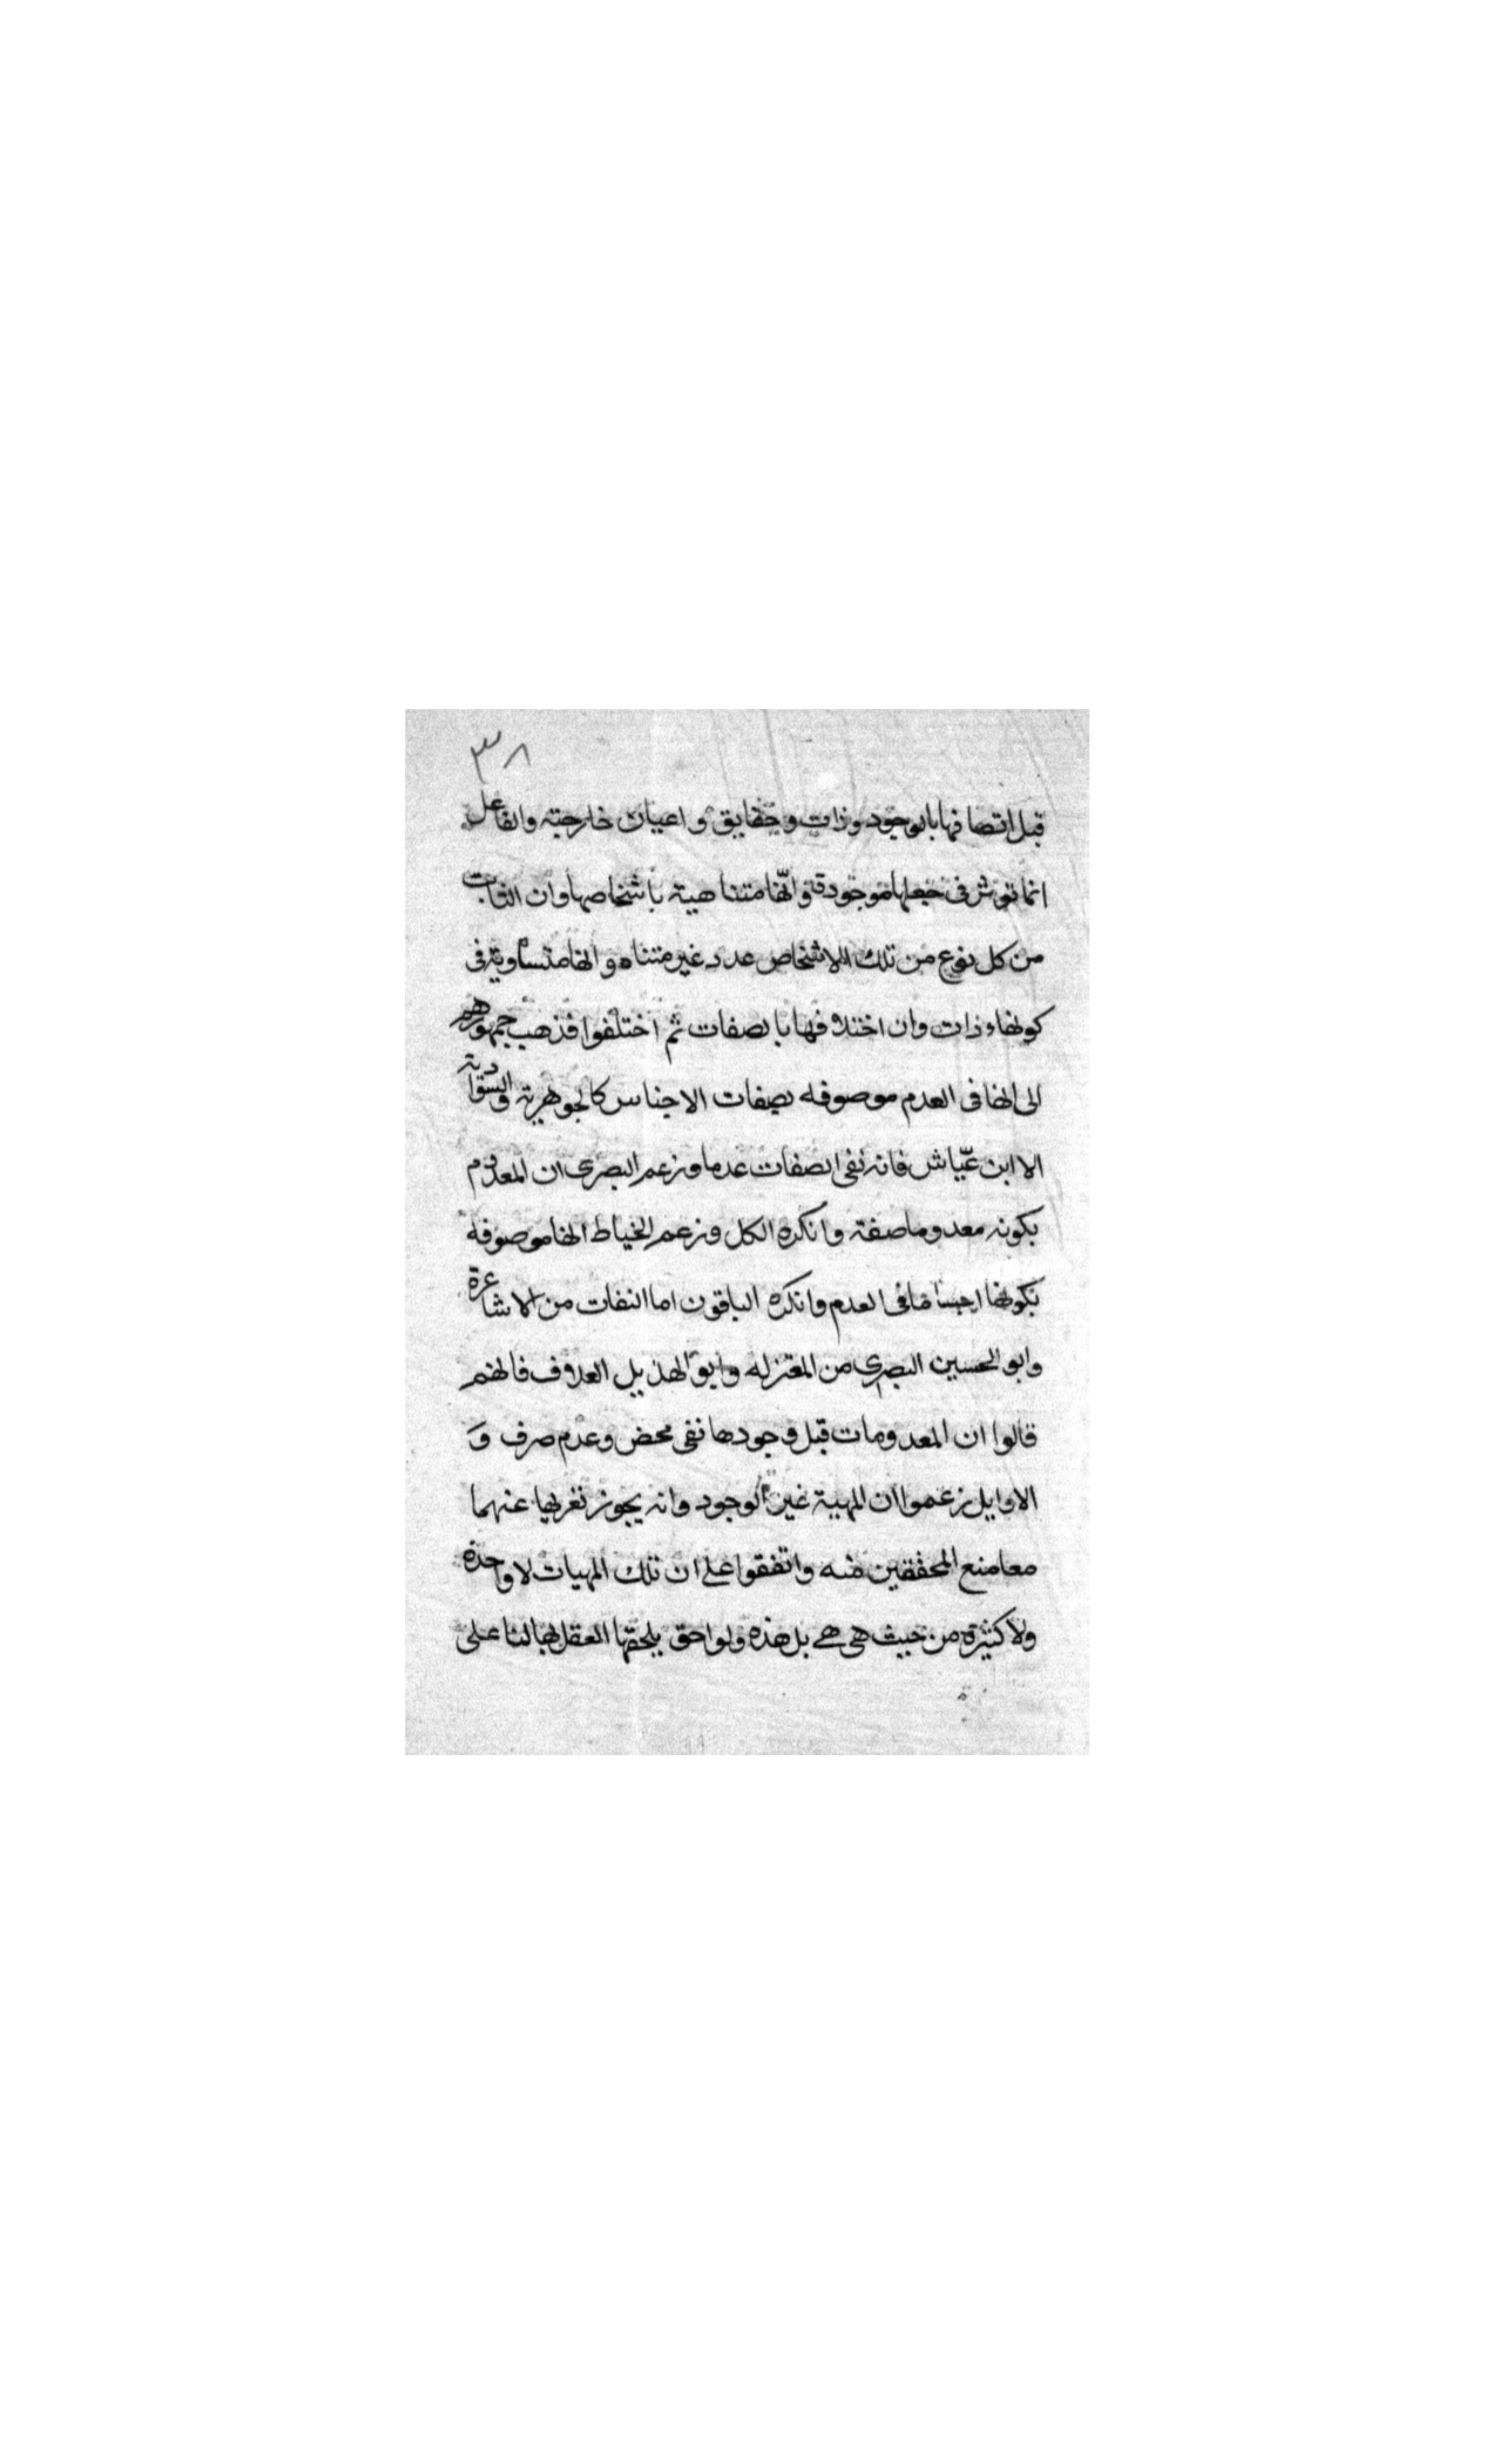 ٣٨
قبل اتصافها بالوجود وذات وحقايق واعيان خارجية والفاعل
انما توثر فى جعلها موجودة وانها متناهية باشخاصها وان الثابت
من كل نوع من تلك الاشخاص عدد غير متناه وانها متساوية فى
كونها ذات وان اختلافها بالصفات ثم اختلفوا فذهب جمهورهم
الى انها فى العدم موصوفه بصفات الاجناس كالجوهرية والسوادية
الا ابن عيّاش فانه نفى الصفات عدما وزعم البصرى ان المعدوم
بكونه معدوما صفة وانكره الكل وزعم الخياط انها موصوفه
بكونها اجساما فى العدم وانكره الباقون اما النفات من الاشاعرة
وابو الحسين البصرى من المعتزله وابو الهذيل العلاف فانهم
قالوا ان المعدومات قبل وجودها نفى محض وعدم صرف و
الاوايل زعموا ان المهية غير الوجود وانه يجوز تعريها عنهما
معا منع المحققين منه واتفقوا على ان تلك المهيات لا واحدة
ولا كثيرة من حيث هى هى بل هذه لواحق يلحقها العقل بها لنا على